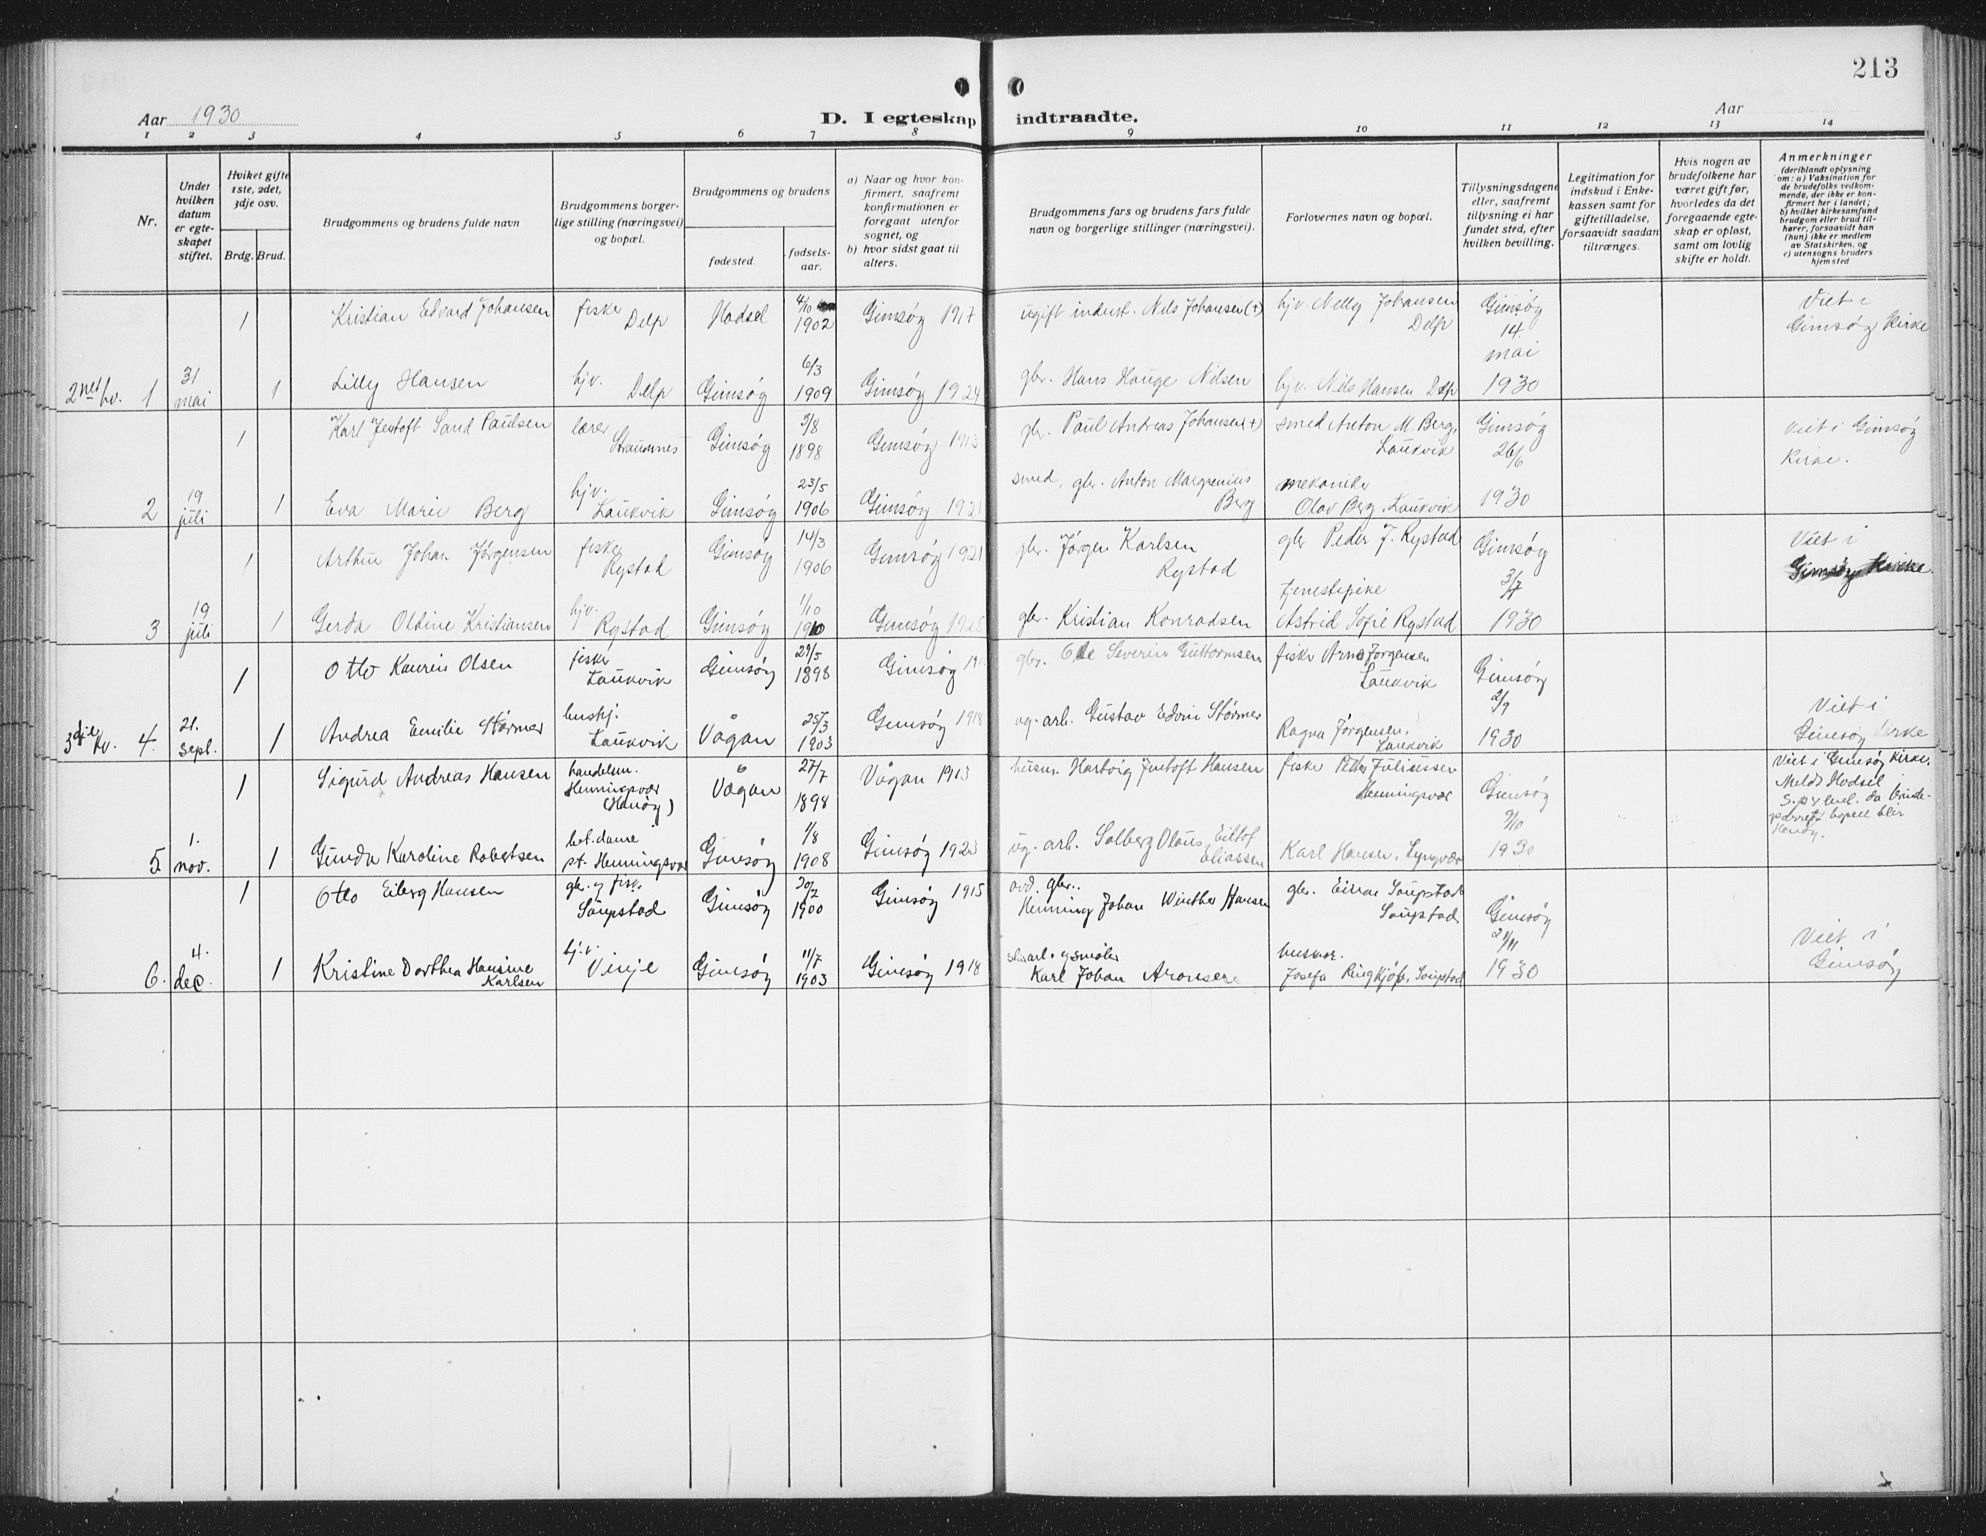 213
Aar 1930
D. I egteskap indtraadte.
Aar
1 2 3 4 5 6 7 8 9 10 11 12 13 14
Nr.
Under hvilken datum er egteskapet stiftet.
Hviket gifte 1ste, 2det, 3dje osv.
Brdg. Brud.
Brudgommens og brudens fulde navn
Brudgommens borgerlige stilling (næringsvei) og bopæl.
Brudgommens og brudens
fødested. fødselsaar.
a) Naar og hvor konfirmert, saafremt konfirmationen er foregaat utenfor sognet, og
b) hvor sidst gaat til alters.
Brudgommens fars og brudens fars fulde navn og borgerlige stillinger (næringsvei).
Forlovernes navn og bopæl.
Tillysningsdagene eller, saafremt tillysning ei har fundet sted, efter hvilken bevilling.
Legitimation for indskud i Enkekassen samt for giftetilladelse, forsaavidt saadan tiltrænges.
Hvis nogen av brudefolkene har været gift før, hvorledes da det foregaaende egteskap er opløst, samt om lovlig skifte er holdt.
Anmerkninger
(deriblandt oplysning om: a) Vaksination for de brudefolks vedkommende, der ikke er konfirmert her i landet; b) hvilket kirkesamfund brudgom eller brud tilhører, forsaavidt han (hun) ikke er medlem av Statskirken, og c) utensogns bruders hjemsted
1 Kristian Edvard Johansen fisker Delp Hadsel 4/10 1902 Gimsøy 1917 ugift indust. Nils Johansen (+) hjv. Nelly Johansen Delp Gimsøy 14. mai 1930 Viet i Gimsøy Kirke
2net hv. 1 31 mai 1 Lilly Hansen hjv. Delp Gimsøy 6/3 1909 Gimsøy 1924 gbr. Hans Hauge Nilsen hjv. Nils Hansen Delp
1 Karl Jentoft Sand Paulsen lærer Straumnes Gimsøy 3/8 1898 Gimsøy 1913 gbr. Paul Andreas Johansen (+) smed Anton M. Berg, Laukvik Gimsøy 26/6 1930 Viet i Gimsøy Kirke.
2 19 juli 1 Eva Marie Berg hjv. Laukvik Gimsøy 23/5 1906 Gimsøy 1921 smed, gbr. Anton Margrenius Berg mekaniker Olav Berg, Laukvik
1 Arthur Johan Jörgensen fisker Rystad Gimsøy 14/3 1906 Gimsøy 1921 gbr. Jörgen Karlsen Rystad gbr. Peder J. Rystad Gimsøy 3/7 1930 Viet i Gimsøy Kirke.
3 19 juli 1 Gerda Oldine Kristiansen hjv. Rystad Gimsøy 1/10 1910 Gimsøy 1925 gbr. Kristian Konradsen tjenestepike Astrid Sofie Rystad
1 Otto Kaurin Olsen fisker Laukvik Gimsøy 29/5 1898 Gimsøy gbr. Ole Severin Guttormsen fisker Arne Jörgensen Laukvik Gimsøy 2/9 1930 Viet i Gimsøy Kirke
3dje kv. 4. 21. sept. 1 Andrea Emilie Störmer hushj. Laukvik Vågan 25/3 1903 Gimsøy 1918 ug. arb. Gustav Edvin Störmer Ragna Jörgensen, Laukvik
1 Sigurd Andreas Hansen handelsm. Henningsvær (Hanøy) Vågan 27/7 1898 Vågan 1913 husm. Hartvig Jentoft Hansen fisker Peder Juliussen Henningsvær Gimsøy 9/10 1930 Viet i Gimsøy Kirke. Meldt Hadsel
5 1. nov. 1 Gunda Karoline Robertsen but.dame pt. Henningsvær Gimsøy 1/8 1908 Gimsøy 1923 ug. arb. Solberg Olaus Eiltof Eliassen Karl Hansen, Lyngvær
1 Otto Eiberg Hansen gbr. og fisk. Saupstad Gimsøy 30/7 1900 Gimsøy 1915 avd. gbr. Henning Johan Winther Hansen gbr. Einar Saupstad Saupstad Gimsøy 21/11 1930 Viet i Gimsøy
6. 4. dec. 1 Kristine Dorthea Hansine Karlsen hjv. Vinje Gimsøy 11/7 1903 Gimsøy 1918 og smøler Karl Johan Aronsen husmor. Josefa Ringkjøb, Saupstad